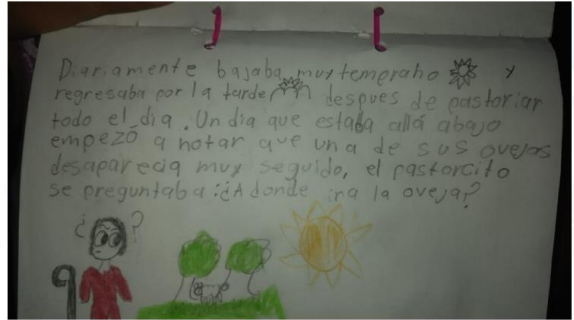 Diariamente bajaba muy temprano y
regresaba por la tarde despues de pastoriar
todo el dia. Un dia que estaba allá abajo
empezó a notar que una de sus ovejas
desaparecia muy seguido, el pastorcito
se preguntaba: ¿A donde ira la oveja?
¿ ?